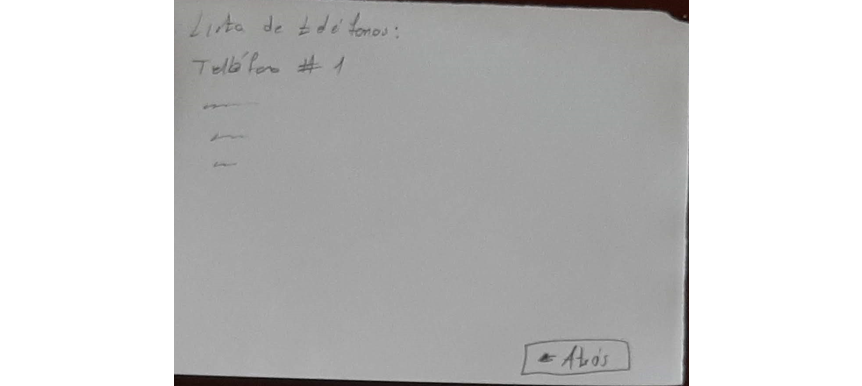 Lista de teléfonos:
Teléfono # 1
← Atrás